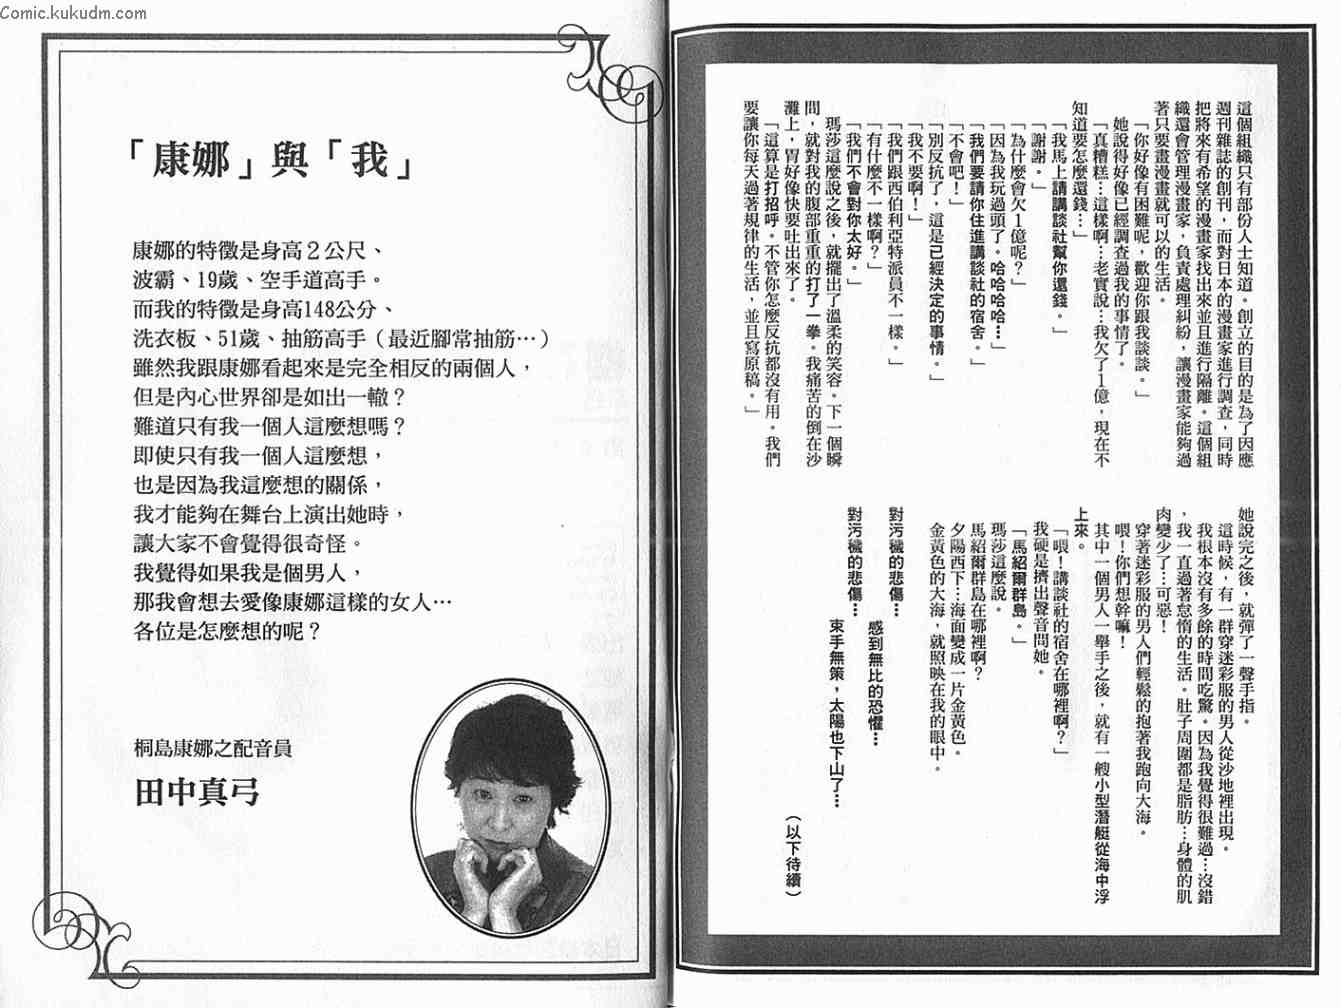 Comic.kukudm.com
這個組織只有部份人士知道。創立的目的是為了因應
週刊雜誌的創刊，而對日本的漫畫家進行調查，同時
把將來有希望的漫畫家找出來並且進行隔離。這個組
織還會管理漫畫家，負責處理糾紛，讓漫畫家能夠過
著只要畫漫畫就可以的生活。
「你好像有困難呢，歡迎你跟我談談。」
她說得好像已經調查過我的事情了。
「真糟糕…這樣啊…老實說…我欠了1億，現在不
知道要怎麼還錢…」
「我馬上請講談社幫你還錢。」
「謝謝。」
「為什麼會欠1億呢？」
「因為我玩過頭了。哈哈哈哈…」
「我們要請你住進講談社的宿舍。」
「不會吧！」
「別反抗了，這是已經決定的事情。」
「我不要啊！」
「我們跟西伯利亞特派員不一樣。」
「有什麼不一樣啊？」
「我們不會對你太好。」
瑪莎這麼說之後，就擺出了溫柔的笑容。下一個瞬
間，就對我的腹部重重的打了一拳。我痛苦的倒在沙
灘上，胃好像快要吐出來了。
「這算是打招呼。不管你怎麼反抗都沒有用。我們
要讓你每天過著規律的生活，並且寫原稿。」
她說完之後，就彈了一聲手指。
這時候，有一群穿迷彩服的男人從沙地裡出現。
我根本沒有多餘的時間吃驚。因為我覺得很難過…沒錯
，我一直過著怠惰的生活。肚子周圍都是脂肪…身體的肌
肉變少了…可惡！
穿著迷彩服的男人們輕鬆的抱著我跑向大海。
喂！你們想幹嘛！
其中一個男人一舉手之後，就有一艘小型潛艇從海中浮
上來。
「喂！講談社的宿舍在哪裡啊？」
我硬是擠出聲音問她。
「馬紹爾群島。」
瑪莎這麼說。
馬紹爾群島在哪裡啊？
夕陽西下…海面變成一片金黃色。
金黃色的大海，就照映在我的眼中。
對污穢的悲傷…
感到無比的恐懼…
對污穢的悲傷…
束手無策，太陽也下山了…
（以下待續）
「康娜」與「我」
康娜的特徵是身高2公尺、
波霸、19歲、空手道高手。
而我的特徵是身高148公分、
洗衣板、51歲、抽筋高手（最近腳常抽筋…）
雖然我跟康娜看起來是完全相反的兩個人，
但是內心世界卻是如出一轍？
難道只有我一個人這麼想嗎？
即使只有我一個人這麼想，
也是因為我這麼想的關係，
我才能夠在舞台上演出她時，
讓大家不會覺得很奇怪。
我覺得如果我是個男人，
那我會想去愛像康娜這樣的女人…
各位是怎麼想的呢？
桐島康娜之配音員
田中真弓